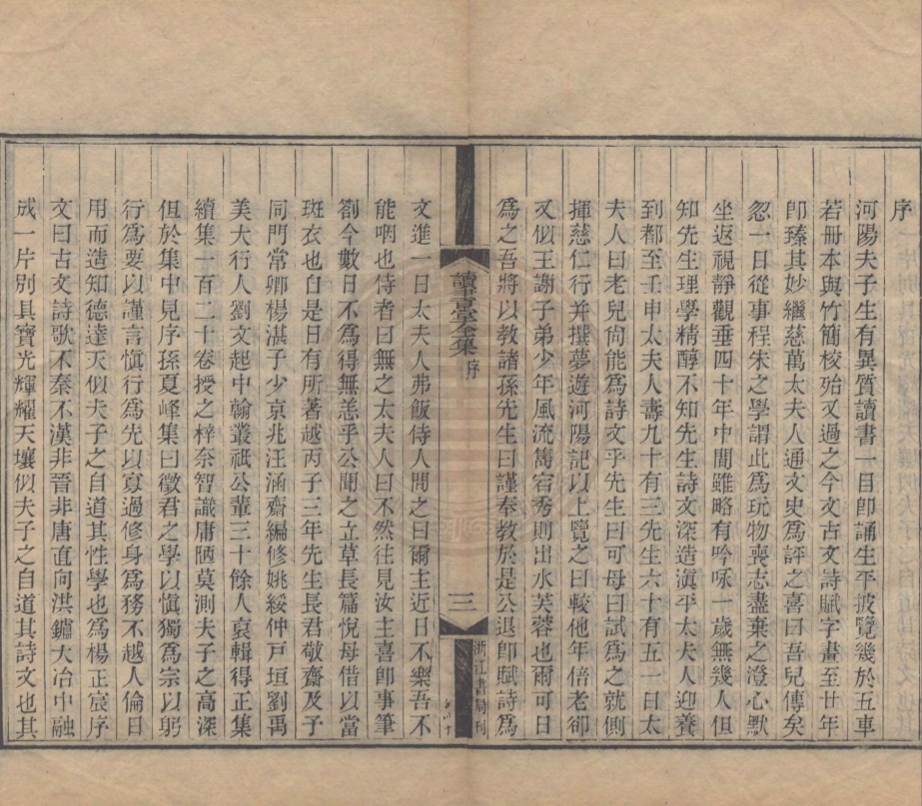 序
河陽夫子生有異質讀書一目卽誦生平披覽幾於五車
若冊本與竹簡校殆又過之今文古文詩賦字畫至廿年
卽臻其妙繼慈萬太夫人通文史爲評之喜曰吾兒傳矣
忽一日從事程朱之學謂此爲玩物喪志盡棄之澄心默
坐返視靜觀垂四十年中間雖略有吟咏一歲無幾人但
知先生理學精醇不知先生詩文深造滇平太夫人迎養
到都至壬申太夫人壽九十有三先生六十有五一日太
夫人曰老兒尙能爲詩文乎先生曰可母曰試爲之就側
揮慈仁行并撰夢遊河陽記以上覽之曰較他年倍老卻
又似王謝子弟少年風流雋宕秀則出水芙蓉也爾可日
爲之吾將以教諸孫先生曰謹奉教於是公退卽賦詩爲
讀書堂全集 序
三
浙江書局刊
文進一日太夫人弗飯侍人問之曰爾主近日不樂吾不
能咽也侍者曰無之太夫人曰不然往見汝主喜卽事筆
劄今數日不爲得無恙乎公聞之立草長篇悅母借以當
斑衣也自是日有所著越丙子三年先生長君敬齋及予
同門常卿楊湛子少京兆汪涵齋編修姚綏仲戸垣劉禹
美大行人劉文起中翰叢祇公輩三十餘人裒輯得正集
續集一百二十卷授之梓奈智識庸陋莫測夫子之高深
但於集中見序孫夏峰集曰徵君之學以愼獨爲宗以躬
行爲要以謹言愼行爲先以寡過修身爲務不越人倫日
用而造知德達天似夫子之自道其性學也爲楊正宸序
文曰古文詩歌不秦不漢非晉非唐直向洪鑪大冶中融
成一片別具寶光輝耀天壤似夫子之自道其詩文也其